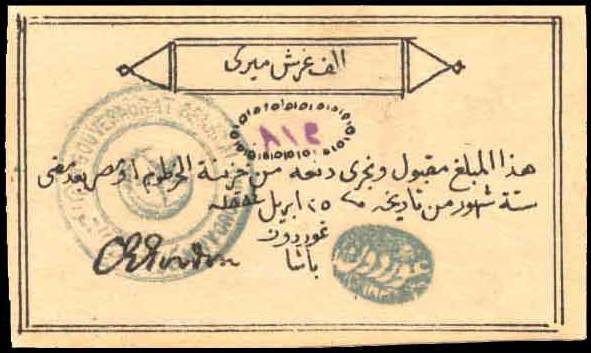 الف غرش ميرى
٨١٩
هذا المبلغ مقبول ويجرى دفعه من خزينة الخرطوم او مصر بعد مضى
ستة شهور من تاريخه ٢٥ ابريل سنة ١٨٨٤
غوردون
باشا
GOUVERNORAT GENERAL
غوردون